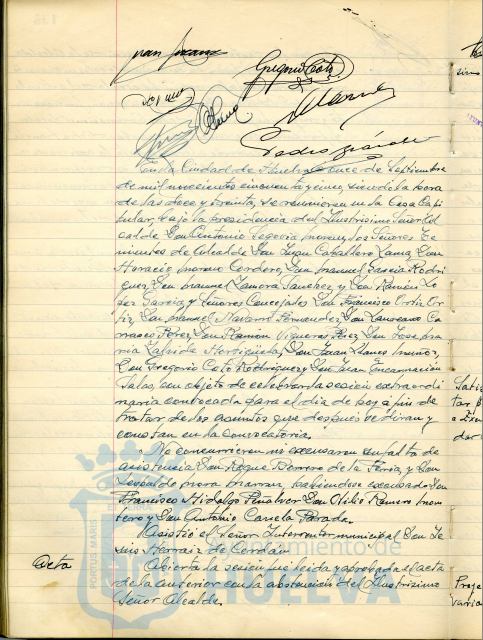 Gregorio Coto
Pedro
En la Ciudad de Huelva a once de Septiembre
de mil novecientos cincuenta y cinco, siendo la hora
de las doce y treinta, se reunieron en la Casa Capi
tular, bajo la presidencia del Ilustrísimo Señor Al
calde Don Antonio Segovia Moreno, los Señores Te
nientes de Alcalde Don Juan Caballero Lama, Don
Horacio Moreno Cordero, Don Manuel García Rodrí
guez, Don Manuel Zamora Sanchez, y Don Ramón Ló
pez García, y Señores Concejales Don Francisco Ortiz Or
tiz, Don Manuel Navarro Fernandez, Don Laureano Ca
rrasco Pérez, Don Ramón Vigueras Pérez, Don José
María Zafra Hortigüela, Don Juan Llanes Muñoz,
Don Gregorio Coto Rodriguez y Don Juan Encarnación
Salas, con objeto de celebrar la sesión extraordi
naria convocada para el día de hoy a fin de
tratar de los asuntos que después se dirán y
constan en la convocatoria.
No concurrieron ni excusaron su falta de
asistencia Don Roque Borrero de la Feria, y Don
Leopoldo Mora Marran, habiéndose excusado Don
Francisco Hidalgo Peñalver, Don Otilio Romero Mon
tero y Don Antonio Canela Parada.
Asistió el Señor Interventor municipal Don Je
sús Herraiz de Cerdán.
Acta
Abierta la sesión fué leída y aprobada el acta
de la anterior con la abstención del Ilustrísimo
Señor Alcalde.
Ayuntamiento de
HUELVA
PORTUS MARIS